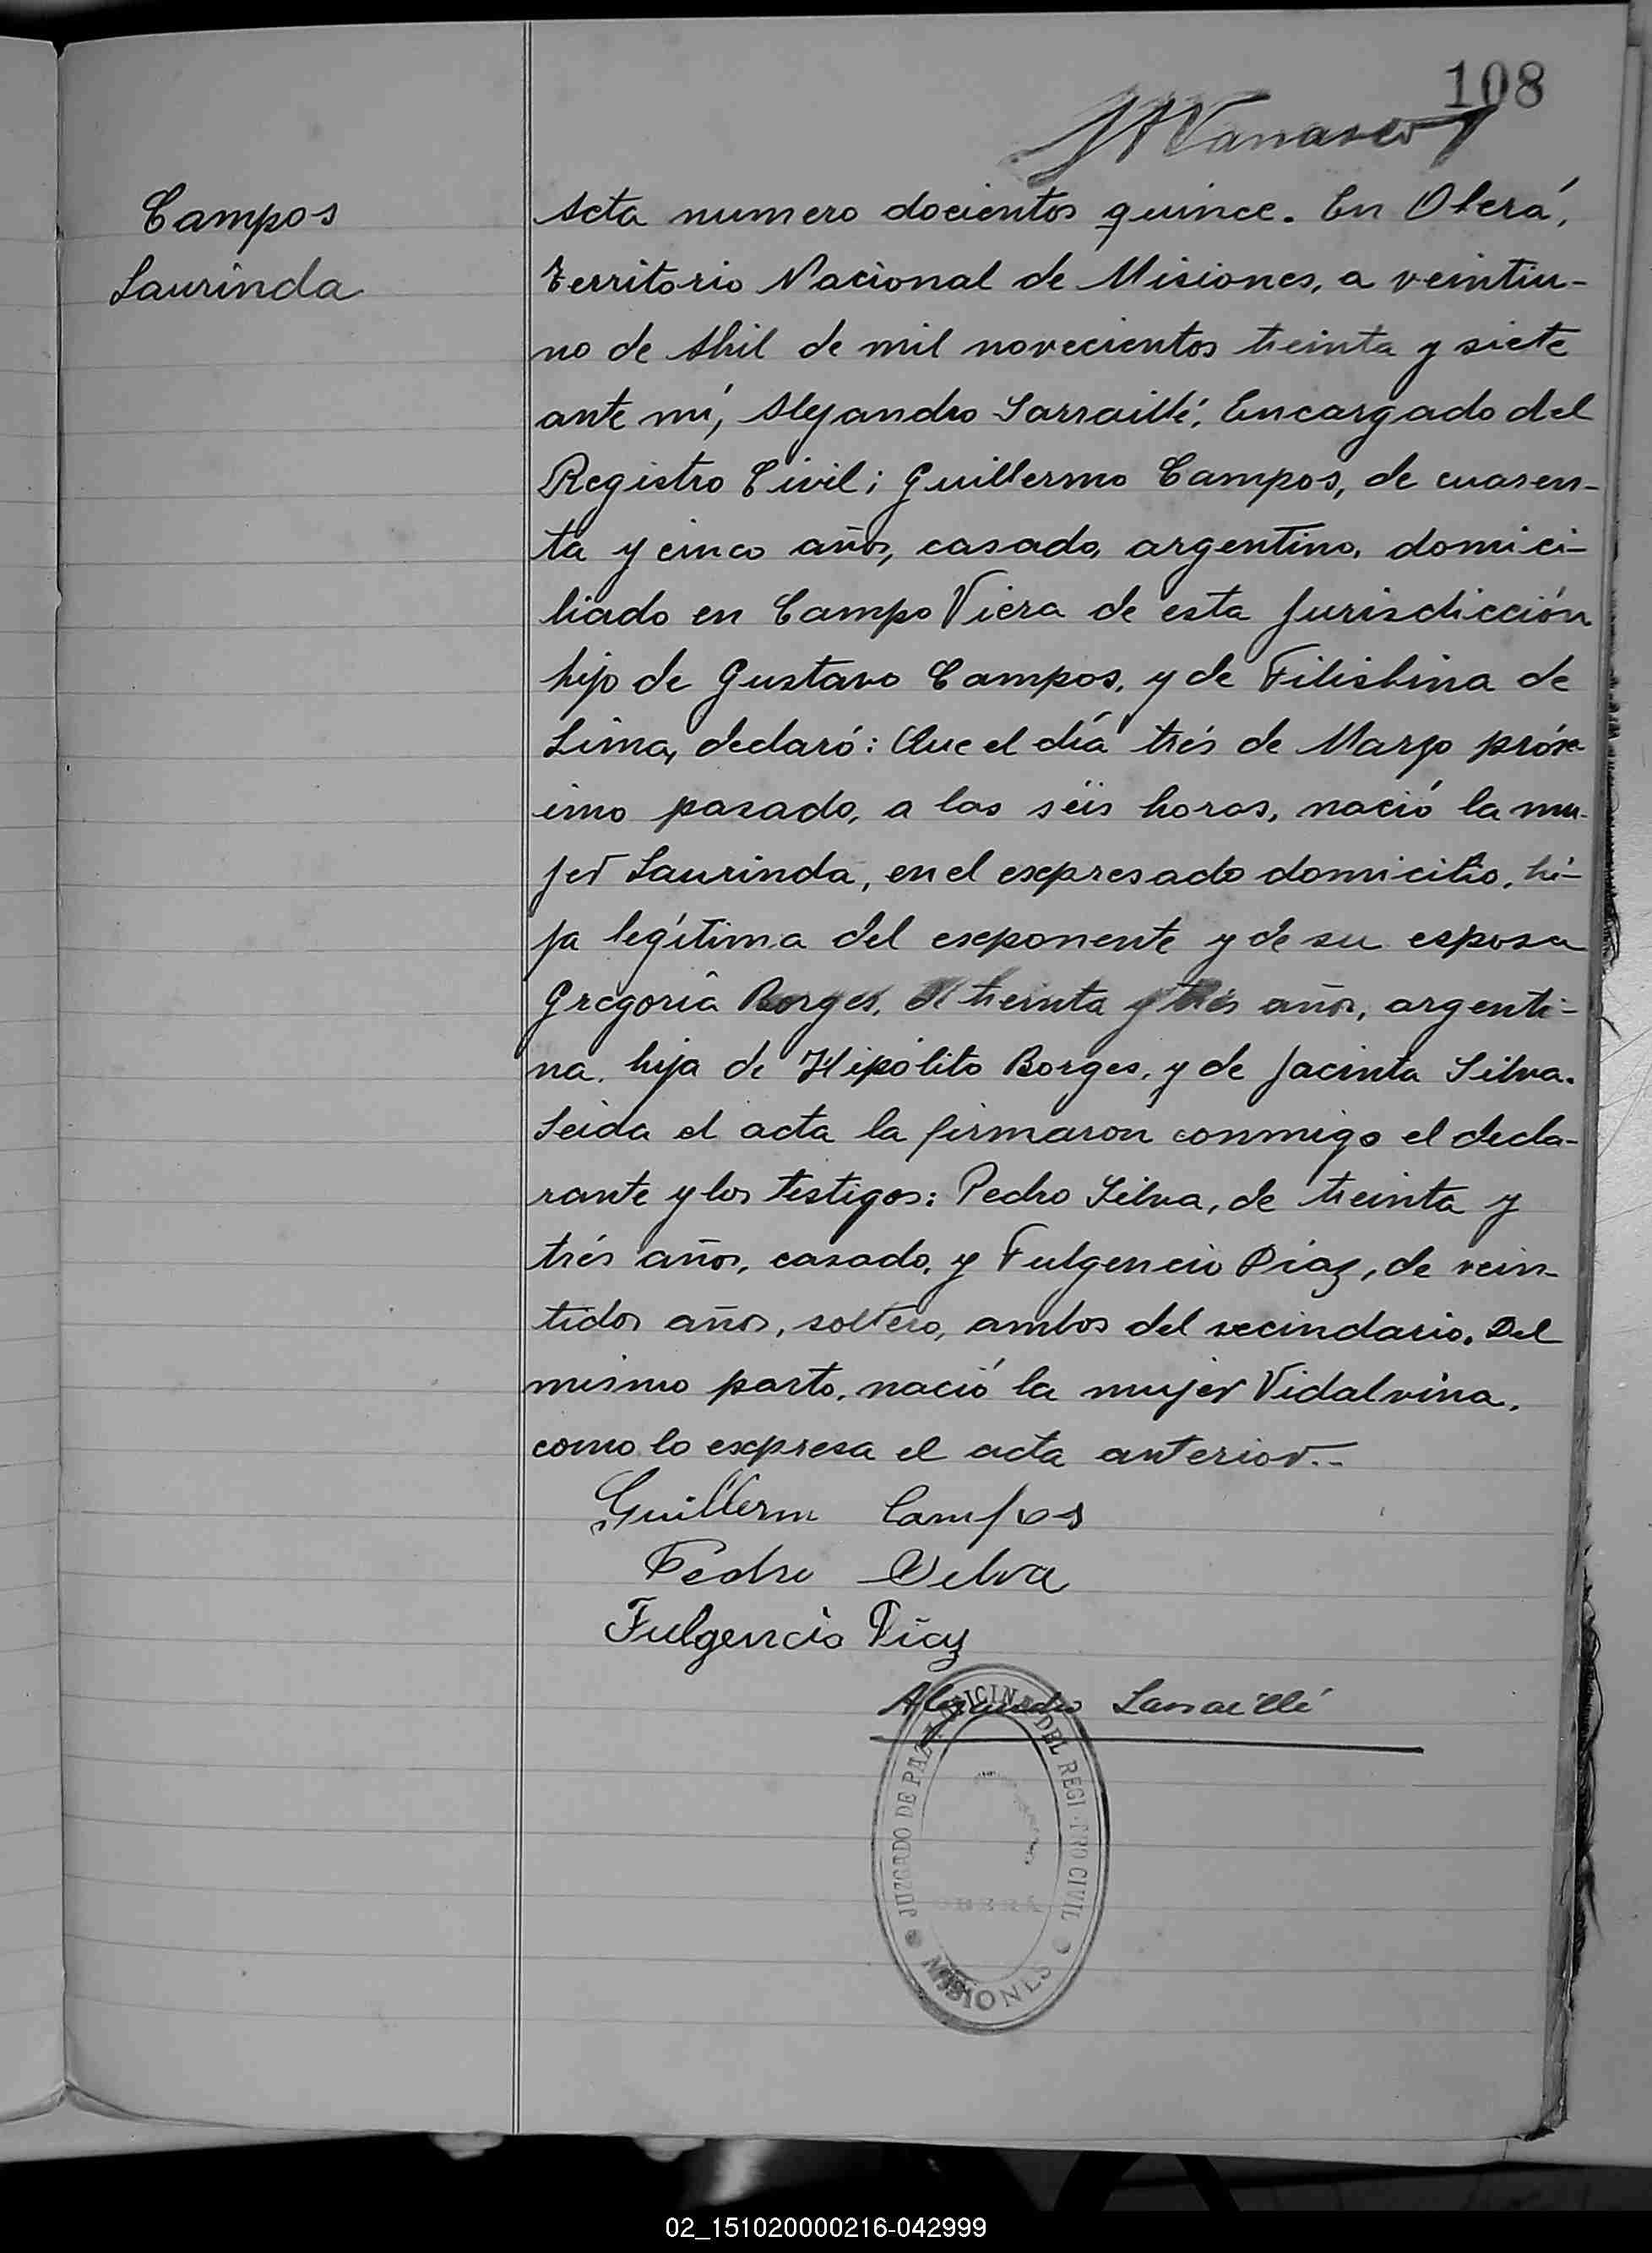 108
Campos
Laurinda
Acta numero docientos quince. En Oberá,
Territorio Nacional de Misiones, a veintiu-
no de Abril de mil novecientos treinta y siete
ante mí, Alejandro Larraillé, Encargado del
Registro Civil; Guillermo Campos, de cuaren-
ta y cinco años, casado, argentino, domici-
liado en Campo Viera de esta Jurisdicción
hijo de Gustavo Campos, y de Filisbina de
Lima, declaró: Que el día trés de Marzo próx-
imo pasado, a las séis horas, nació la mu-
jer Laurinda, en el expresado domicilio, hi-
ja legítima del exponente y de su esposa
Gregoria Borges, de treinta y trés años, argenti-
na, hija de Hipólito Borges, y de Jacinta Silva.
Leida el acta la firmaron conmigo el decla-
rante y los testigos: Pedro Silva, de treinta y
trés años, casado, y Fulgencio Díaz, de vein-
tidos años, soltero, ambos del vecindario. Del
mismo parto, nació la mujer Vidalvina,
como lo expresa el acta anterior.--
Guillerm Campos
Pedro Selva
Fulgencio Díaz
Alejandro Larraillé
JUZGADO DE PAZ Y OFICINA DEL REGISTRO CIVIL
OBERÁ
MISIONES
02_151020000216-042999